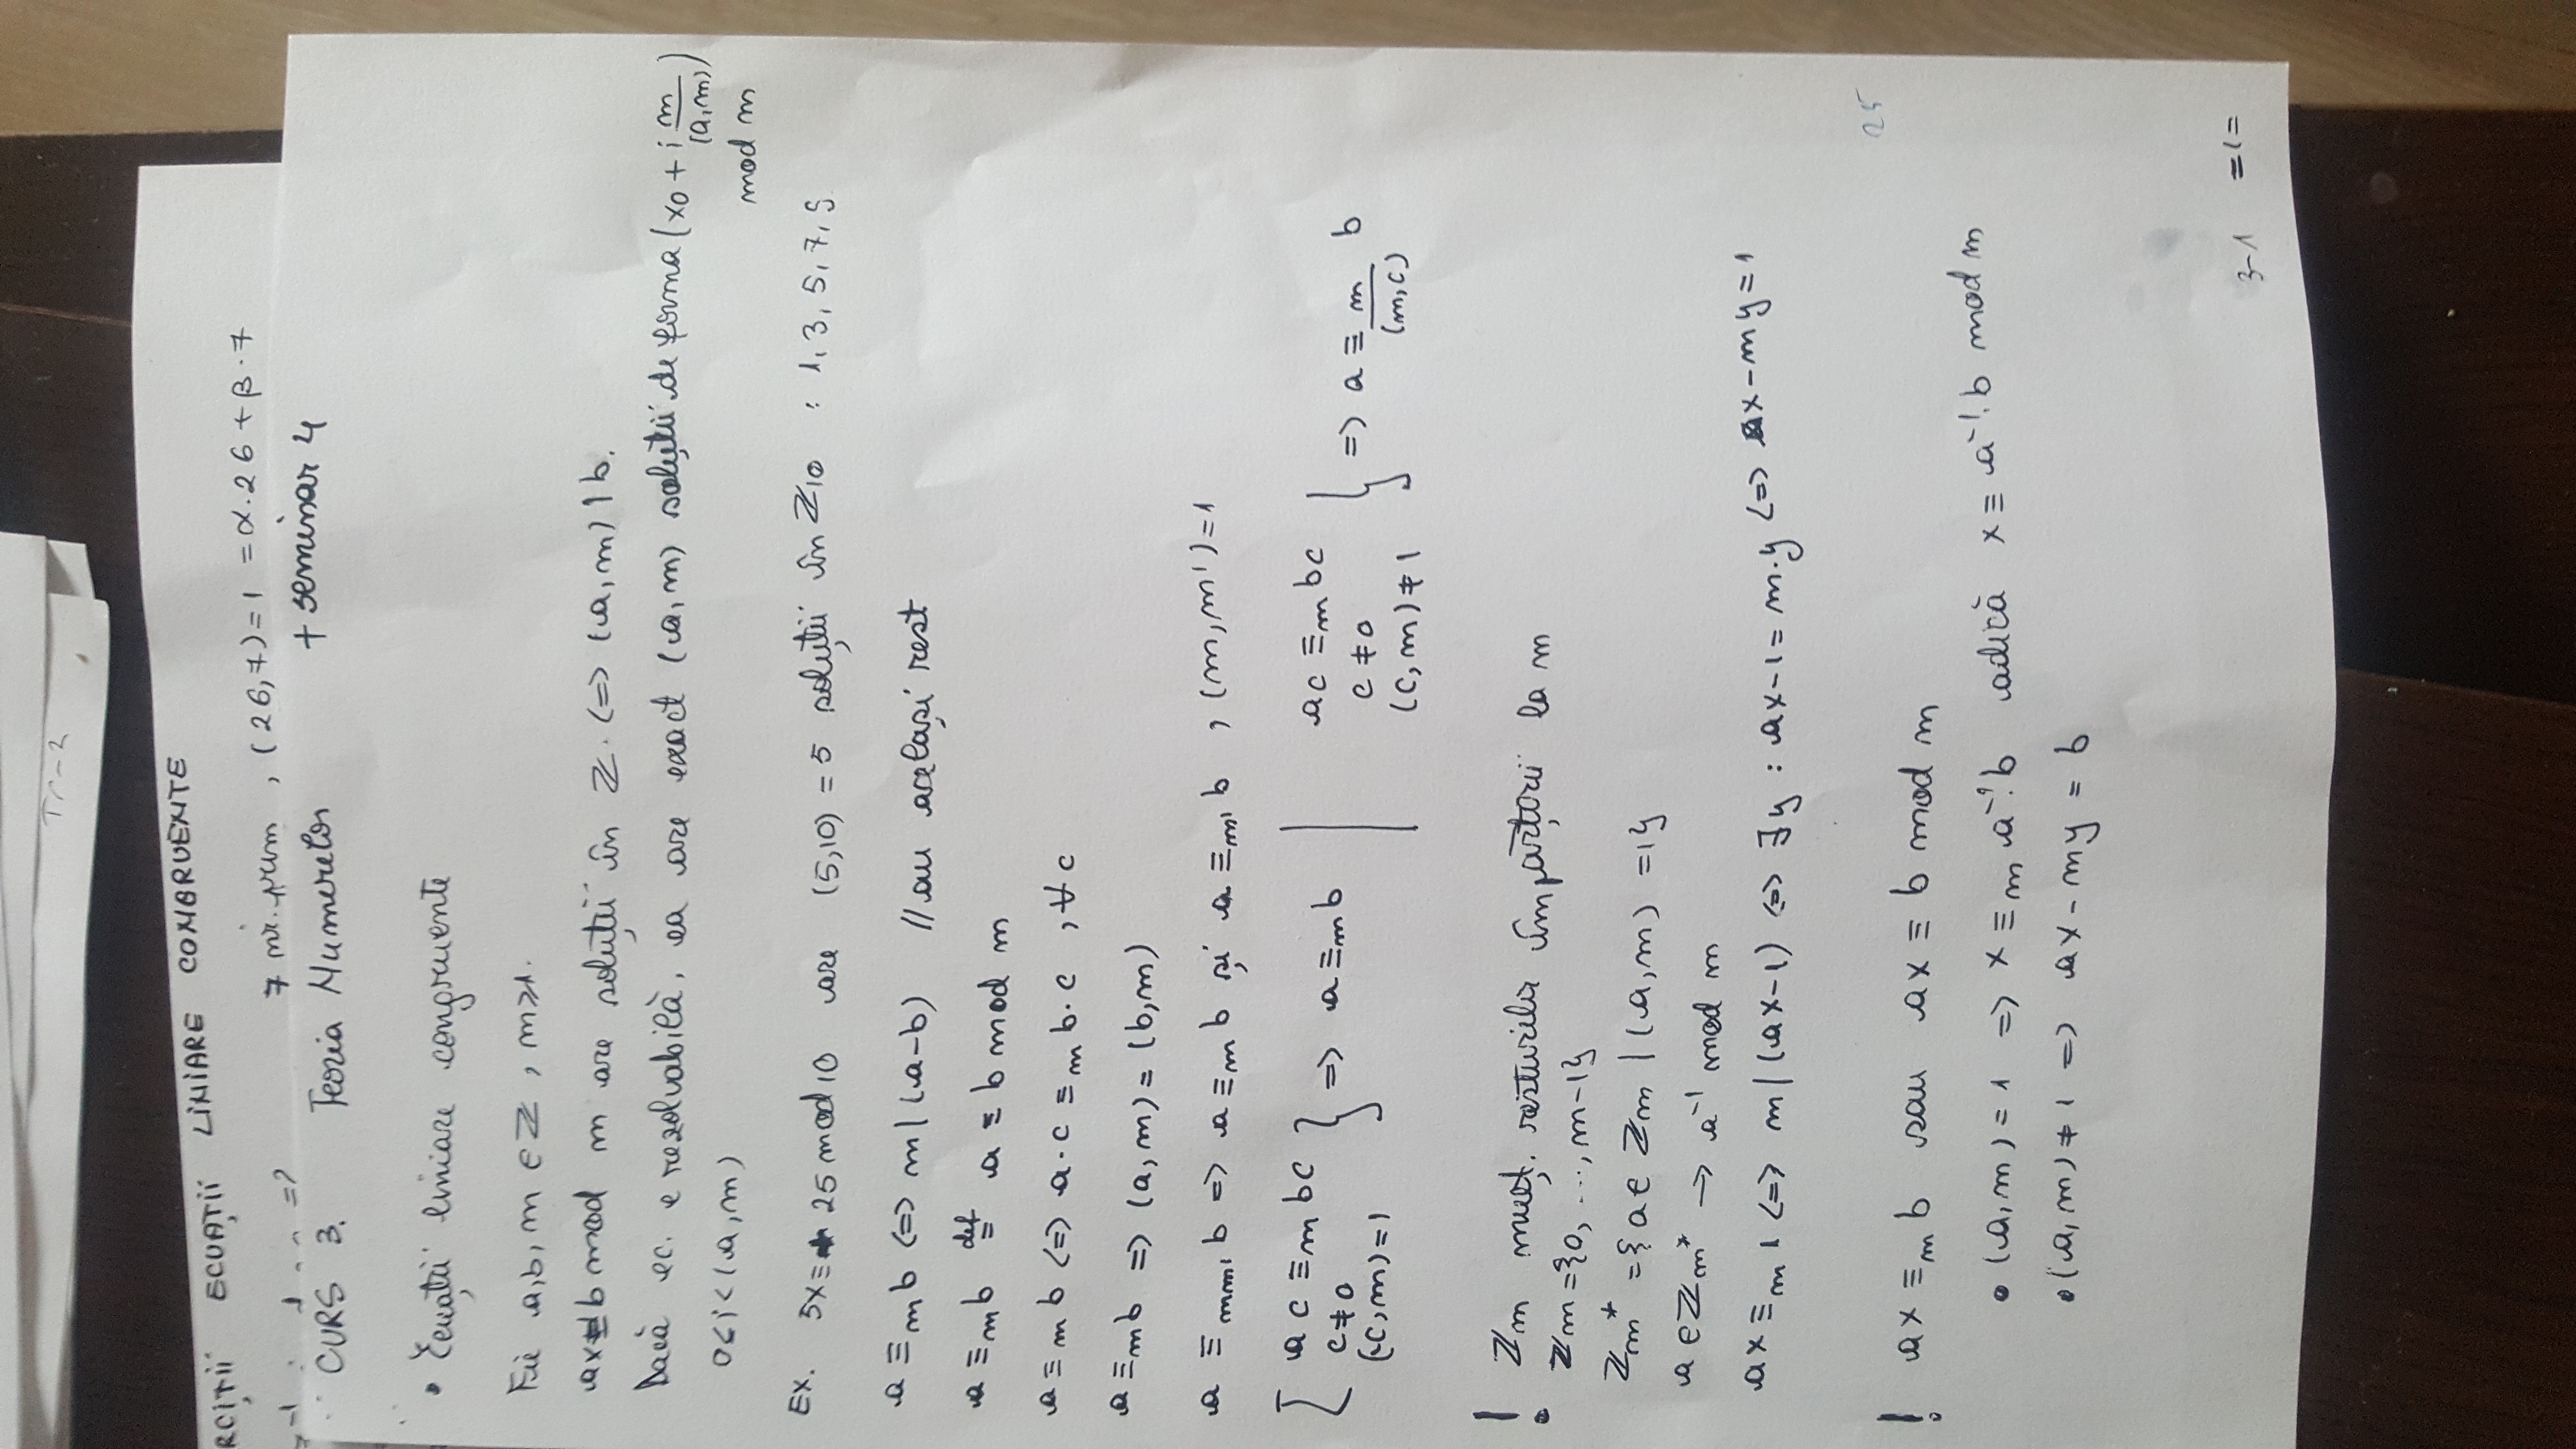 Tr-2
RCIȚII ECUAȚII LINIARE CONGRUENTE
7 nr. prim , (26,7)=1 =α.26+β.7
-1 =?
CURS 3. Teoria Numerelor + seminar 4
• Ecuații liniare congruente
Fie a,b,m ∈ ℤ , m≥1.
ax≡b mod m are soluții în ℤ. <=> (a,m) | b.
Dacă ec. e rezolvabilă, ea are exact (a,m) soluții de forma (x0 + i m/(a,m))
0≤i<(a,m) mod m
EX. 5x≡ 25 mod 10 are (5,10) = 5 soluții în ℤ10 : 1, 3, 5, 7, 9
a ≡m b <=> m | (a-b) // au același rest
a ≡m b def= a ≡ b mod m
a ≡m b <=> a·c ≡m b·c , ∀c
a ≡m b => (a,m) = (b,m)
a ≡mm' b => a ≡m b și a ≡m' b , (m,m')=1
[ ac ≡m bc
c≠0
(c,m)=1 } => a ≡m b | ac ≡m bc
c≠0
(c,m)≠1 } => a ≡ m/(m,c) b
! ℤm mulț. resturilor împărțirii la m
ℤm={0, ..., m-1}
ℤm* ={a∈ ℤm | (a,m) =1}
a∈ℤm* → a⁻¹ mod m
ax ≡m 1 <=> m | (ax-1) <=> ∃y : ax-1= m.y <=> ax-my=1
25
! ax ≡m b sau ax ≡ b mod m
• (a,m)=1 => x ≡m a⁻¹.b adică x ≡ a⁻¹.b mod m
• (a,m)≠1 => ax-my = b
3-1 =1=